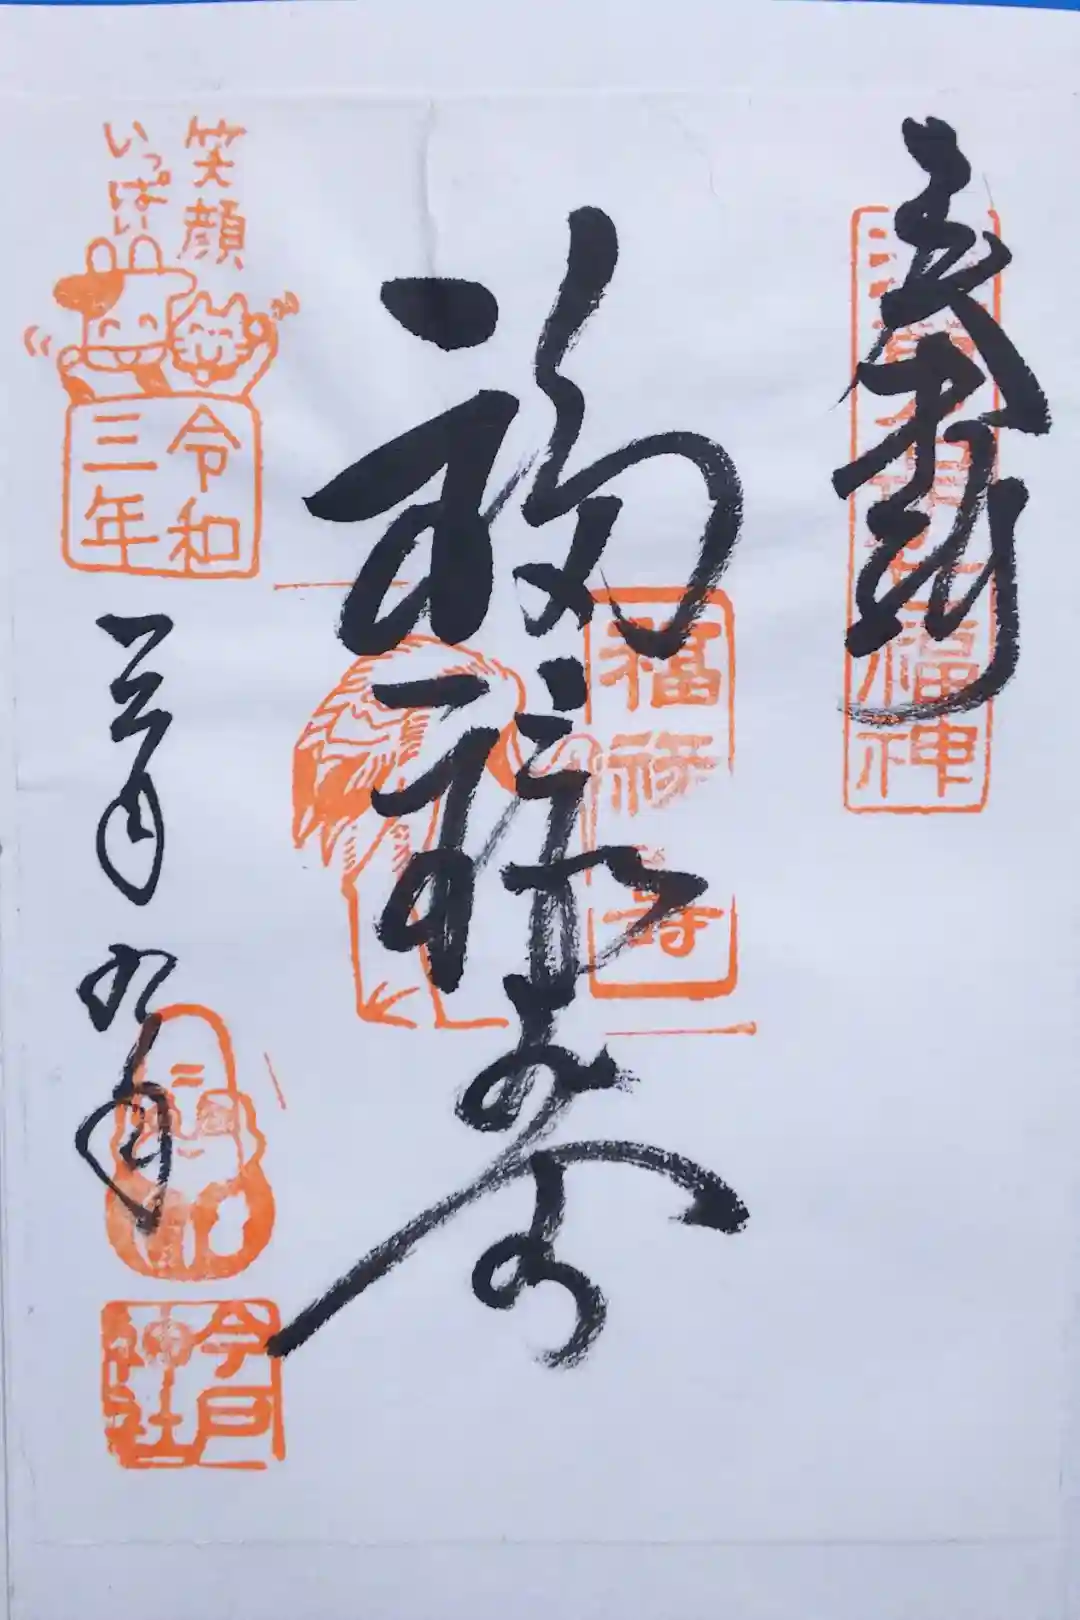 奉拝
福神
福禄寿
福禄寿
笑顔
いっぱい
令和
三年
一月
九日
今戸
神社